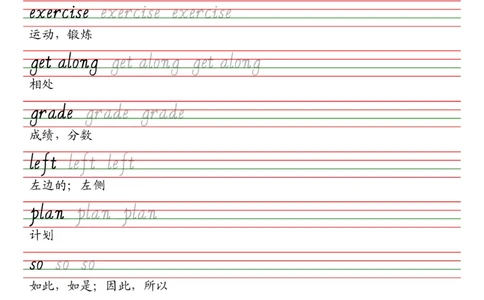 exercise exercise exercise
运动，锻炼
get along get along get along
相处
grade grade grade
成绩，分数
left left left
左边的；左侧
plan plan plan
计划
so so so
如此，如是；因此，所以